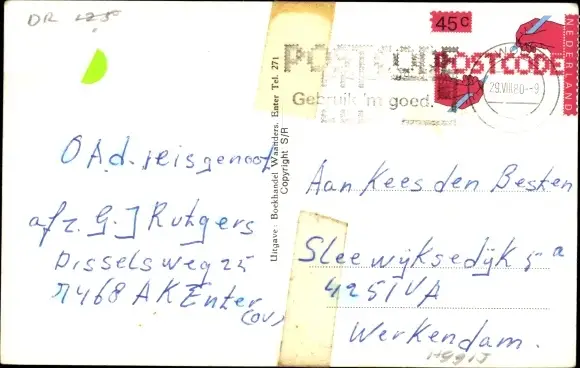 DR 125
45c
NEDERLAND
POSTCODE
POSTCODE
29.VIII.80.-9
Gebruik 'm goed.
O Ad. reisgenoot
afz. G. J Rutgers
Disselsweg 25
7468 AK Enter
(OV)
Uitgave: Boekhandel Waanders, Enter Tel. 271
Copyright S/R
Aan Kees den Besten
Sleewijksedijk 5a
4251VA
Werkendam.